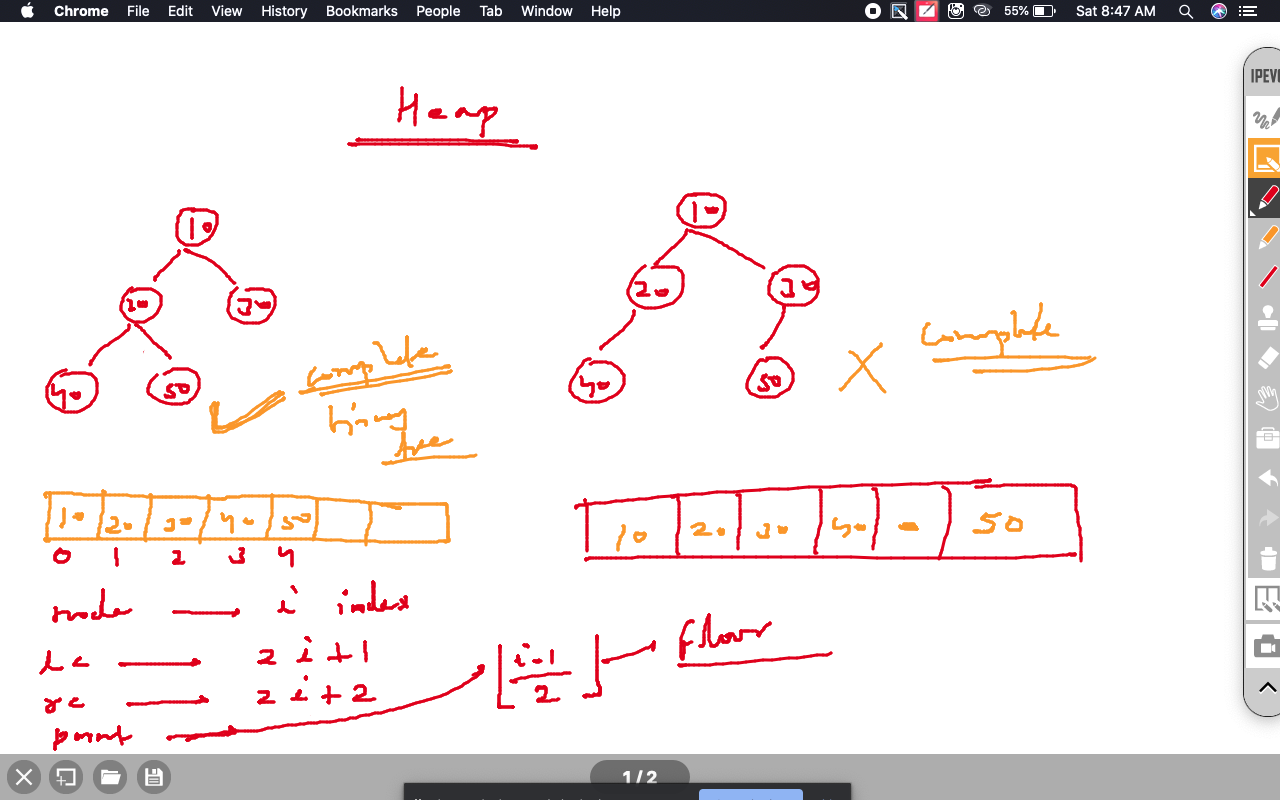 Chrome File Edit View History Bookmarks People Tab Window Help 55% Sat 8:47 AM
IPEV
Heap
10
20 30
40 50
complete
binary
tree
10
20 30
40 50
X
Complete
10 20 30 40 50
0 1 2 3 4
10 20 30 40 - 50
node → i index
lc → 2i+1
rc → 2i+2
parent → ⌊(i-1)/2⌋ → floor
1 / 2